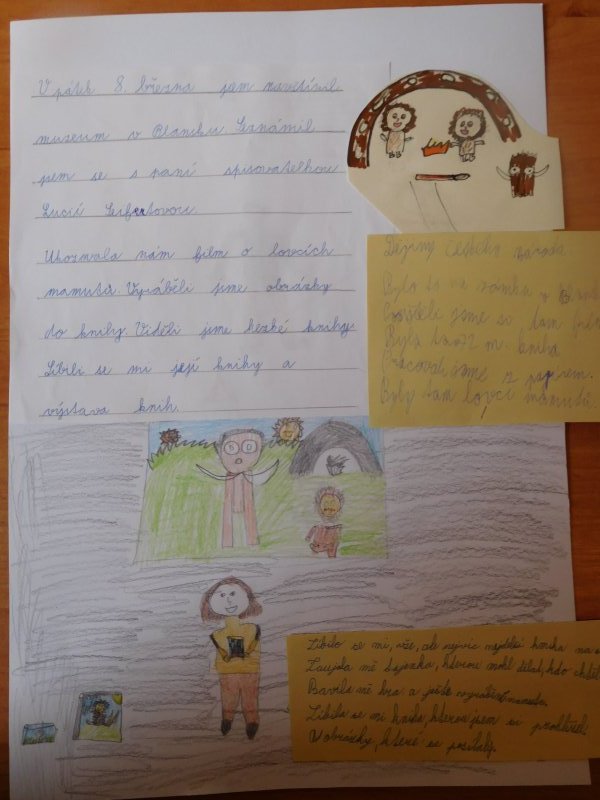 V pátek 8. března jsem navštívil
muzeum v Blaníku. Seznámil
jsem se s paní spisovatelkou
Lucií Seifertovou.
Ukázala nám film o lovcích
mamutů. Vyráběli jsme obrázky
do knihy. Viděli jsme hezké knihy.
Líbili se mi její knihy a
výstava knih.
Dějiny českého národa.
Bylo to na zámku v
jsme si tam
Byla tam 22 m. kniha
Pracovali jsme s papírem.
Byly tam lovci mamutů.
Líbilo se mi, vše, ale nejvíc nejdelší kniha na s
Zaujala mě tajenka, kterou mohl dělat, kdo chtěl
Bavila mě hra a ještě vyrábění mamuta.
Líbila se mi kniha, kterou jsem si prohlížel
V obrázky, které se posílaly.